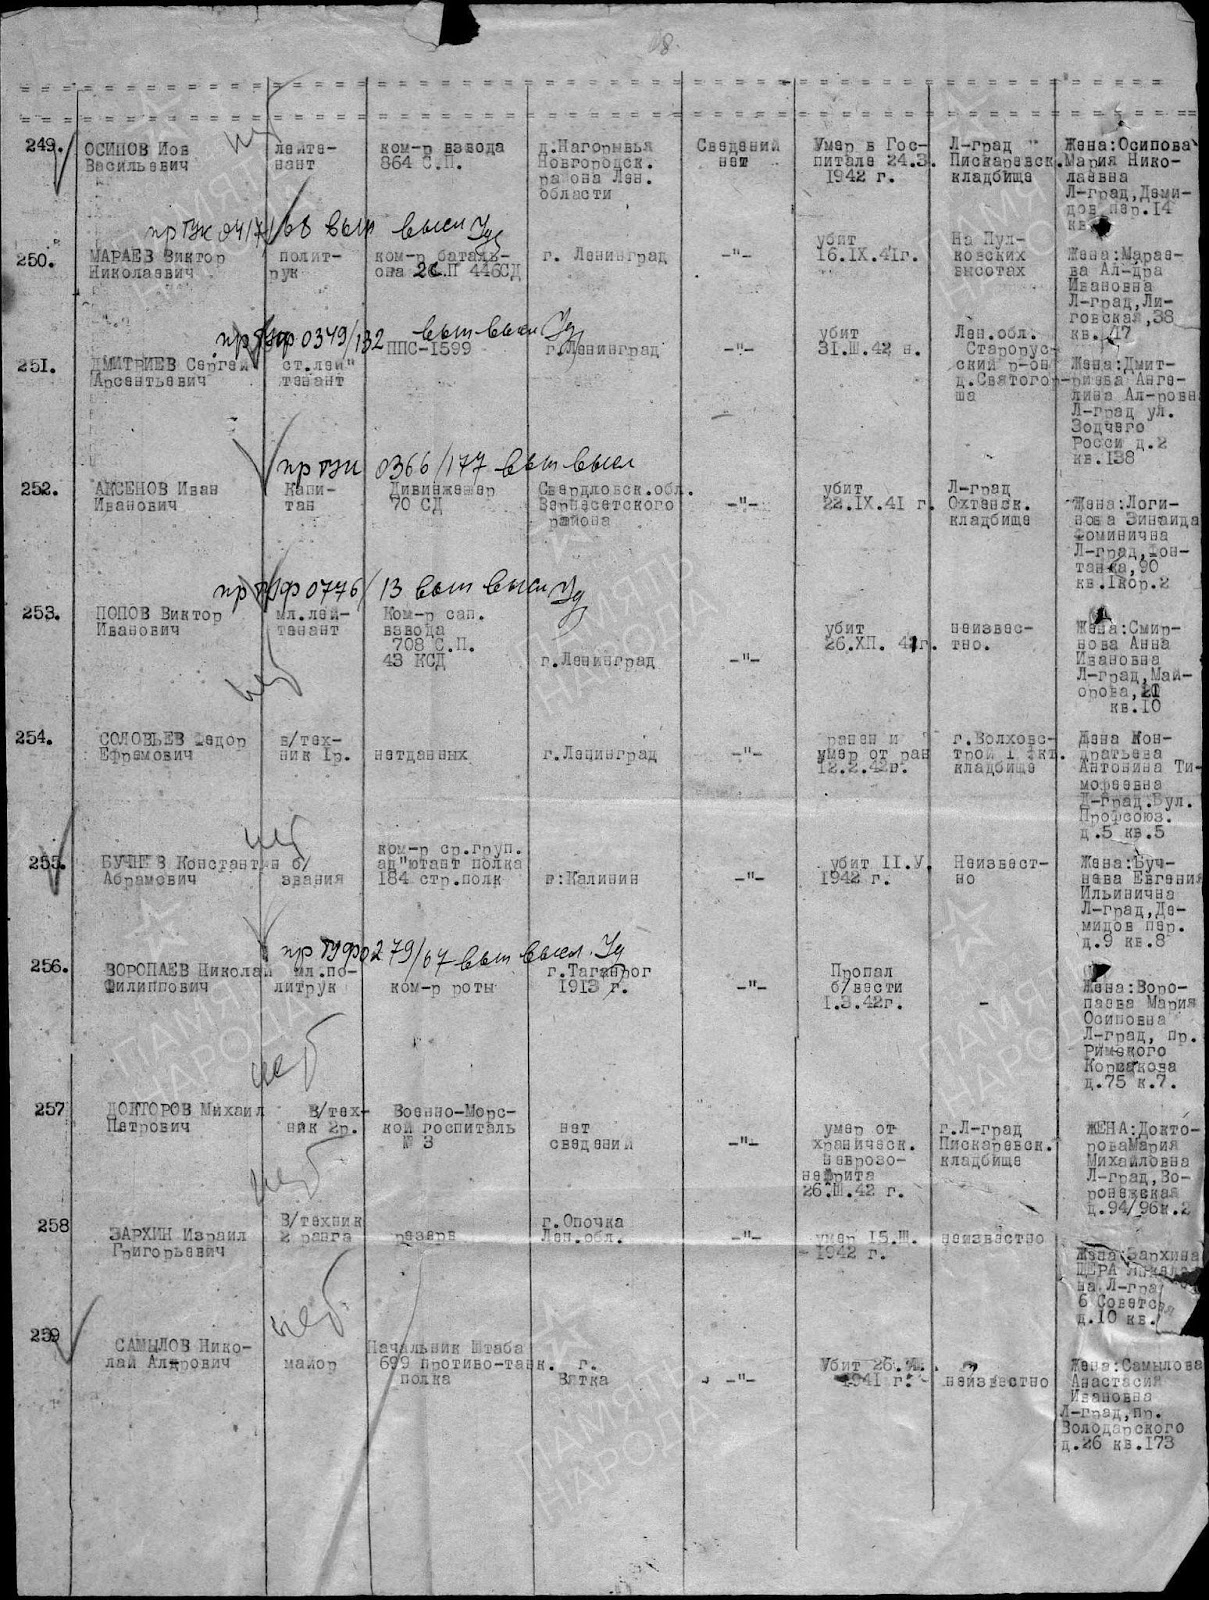 249. ОСИПОВ Иов Васильевич лейте-нант ком-р взвода 864 С.П. д.Нагорывья Новгородск. района Лен. области Сведений нет Умер в Гос-питале 24.3. 1942 г. Л-град Пискаревск. кладбище Жена:Осипова Мария Нико-лаевна Л-град,Деми-дов пер.14 кв.
нет
пр ГУК 04/7/68 вып выси Уд
250. МАРАЕВ Виктор Николаевич полит-рук ком-р баталь-она 2С.П 446СД г. Ленинград -"- убит 16.IX.41г. На Пул-ковских высотах Жена:Марае-ва Ал-дра Ивановна Л-град,Ли-говская,38 кв. 47
0349/132 вып выси Уд
251. ДМИТРИЕВ Сергей Арсентьевич ст.лей"тенант ППС-1599 г.Ленинград -"- убит 31.Ш.42 н. Лен.обл. Старорус-ский р-он д.Святого-ша Жена:Дмит-риева Анге-лина Ал-ровн Л-град ул. Зодчего Росси д.2 кв.138
пр ГУК 0366/177 вып высл
252. АКСЕНОВ Иван Иванович Капи-тан Дивинженер 70 СД Свердловск.обл. Вернесетского района -"- убит 22.IX.41 г. Л-град Охтенск. кладбище Жена:Логи-нова Зинаида Фоминична Л-град,Фон-танка,90 кв.1кор.2
0776/13 вып выси Уд
253. ПОПОВ Виктор Иванович мл.лей-тенант Ком-р сап. взвода 708 С.П. 43 КСД г.Ленинград -"- убит 26.ХП. 41г. неизвес-тно. Жена:Смир-нова Анна Ивановна Л-град,Май-орова, кв.10
нет
254. СОЛОВЬЕВ Федор Ефремович в/тех-ник 1р. нетданных г.Ленинград -"- ранен и умер от ран 12.2.42г. г.Волховс-трой 1 Экт. кладбище Жена Кон-дратьева Антонина Ти-мофеевна Л-град.Бул. Профсоюз. д.5 кв.5
нет
255. БУЧНЕВ Константин Абрамович б/звания ком-р ср.груп. ад"ютант полка 184 стр.полк г:Калинин -"- убит II.У. 1942 г. Неизвест-но Жена:Буч-нева Евгения Ильинична Л-град,Де-мидов пер. д.9 кв.8
0279/67 вып высл. Уд
256. ВОРОПАЕВ Николай Филиппович мл.по-литрук ком-р роты г.Таганрог 1913 г. -"- Пропал б/вести 1.3.42г. - Жена:Воро-паева Мария Осиповна Л-град, пр. Римского Корсакова д.75 к.7.
нет
257 ДОКТОРОВ Михаил Петрович В/тех-ник 2р. Военно-Морс-кой госпиталь № 3 нет сведений -"- умер от храническ. неврозо-нефрита 26.Ш.42 г. г.Л-град Пискаревск. кладбище ЖЕНА:Докто-роваМария Михайловна Л-град,Во-ронежская д.94/96к.2
нет
258 ЗАРХИН Израил Григорьевич В/техник 2 ранга резерв г.Опочка Лен.обл. -"- умер 15.Ш. -1942 г. неизвестно Жена:Зархина ШЕРА Л-гра 6 Советская д.10 кв.
нет
259 САМЫЛОВ Нико-лай Алдрович майор Начальник Штаба 699 противо-танк. полка г. Вятка -"- Убит 26. 1941 г. неизвестно Жена:Самылова Анастасия Ивановна Л-град,пр. Володарского д.26 кв.173
ПАМЯТЬ НАРОДА